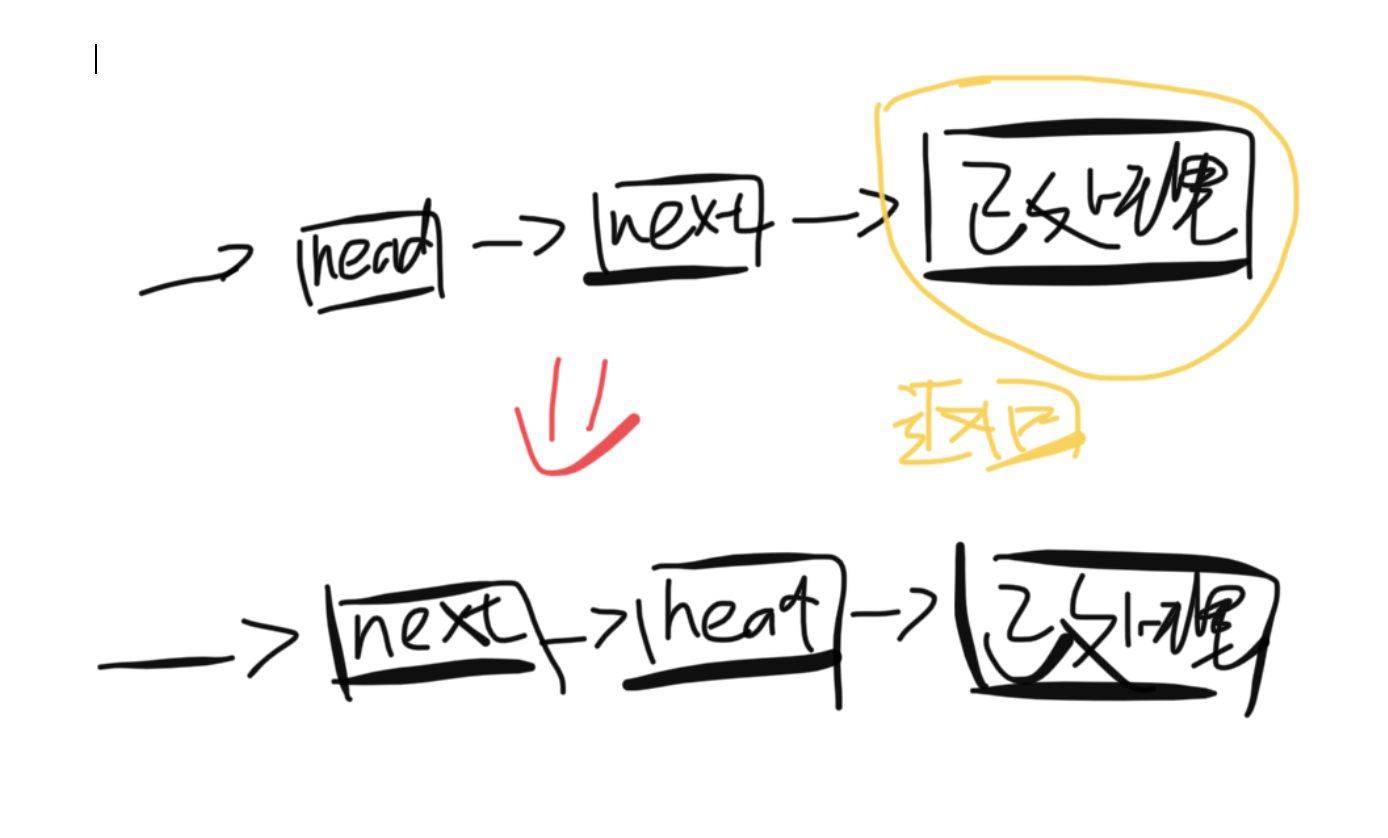 head next 已处理
递归
next head 已处理